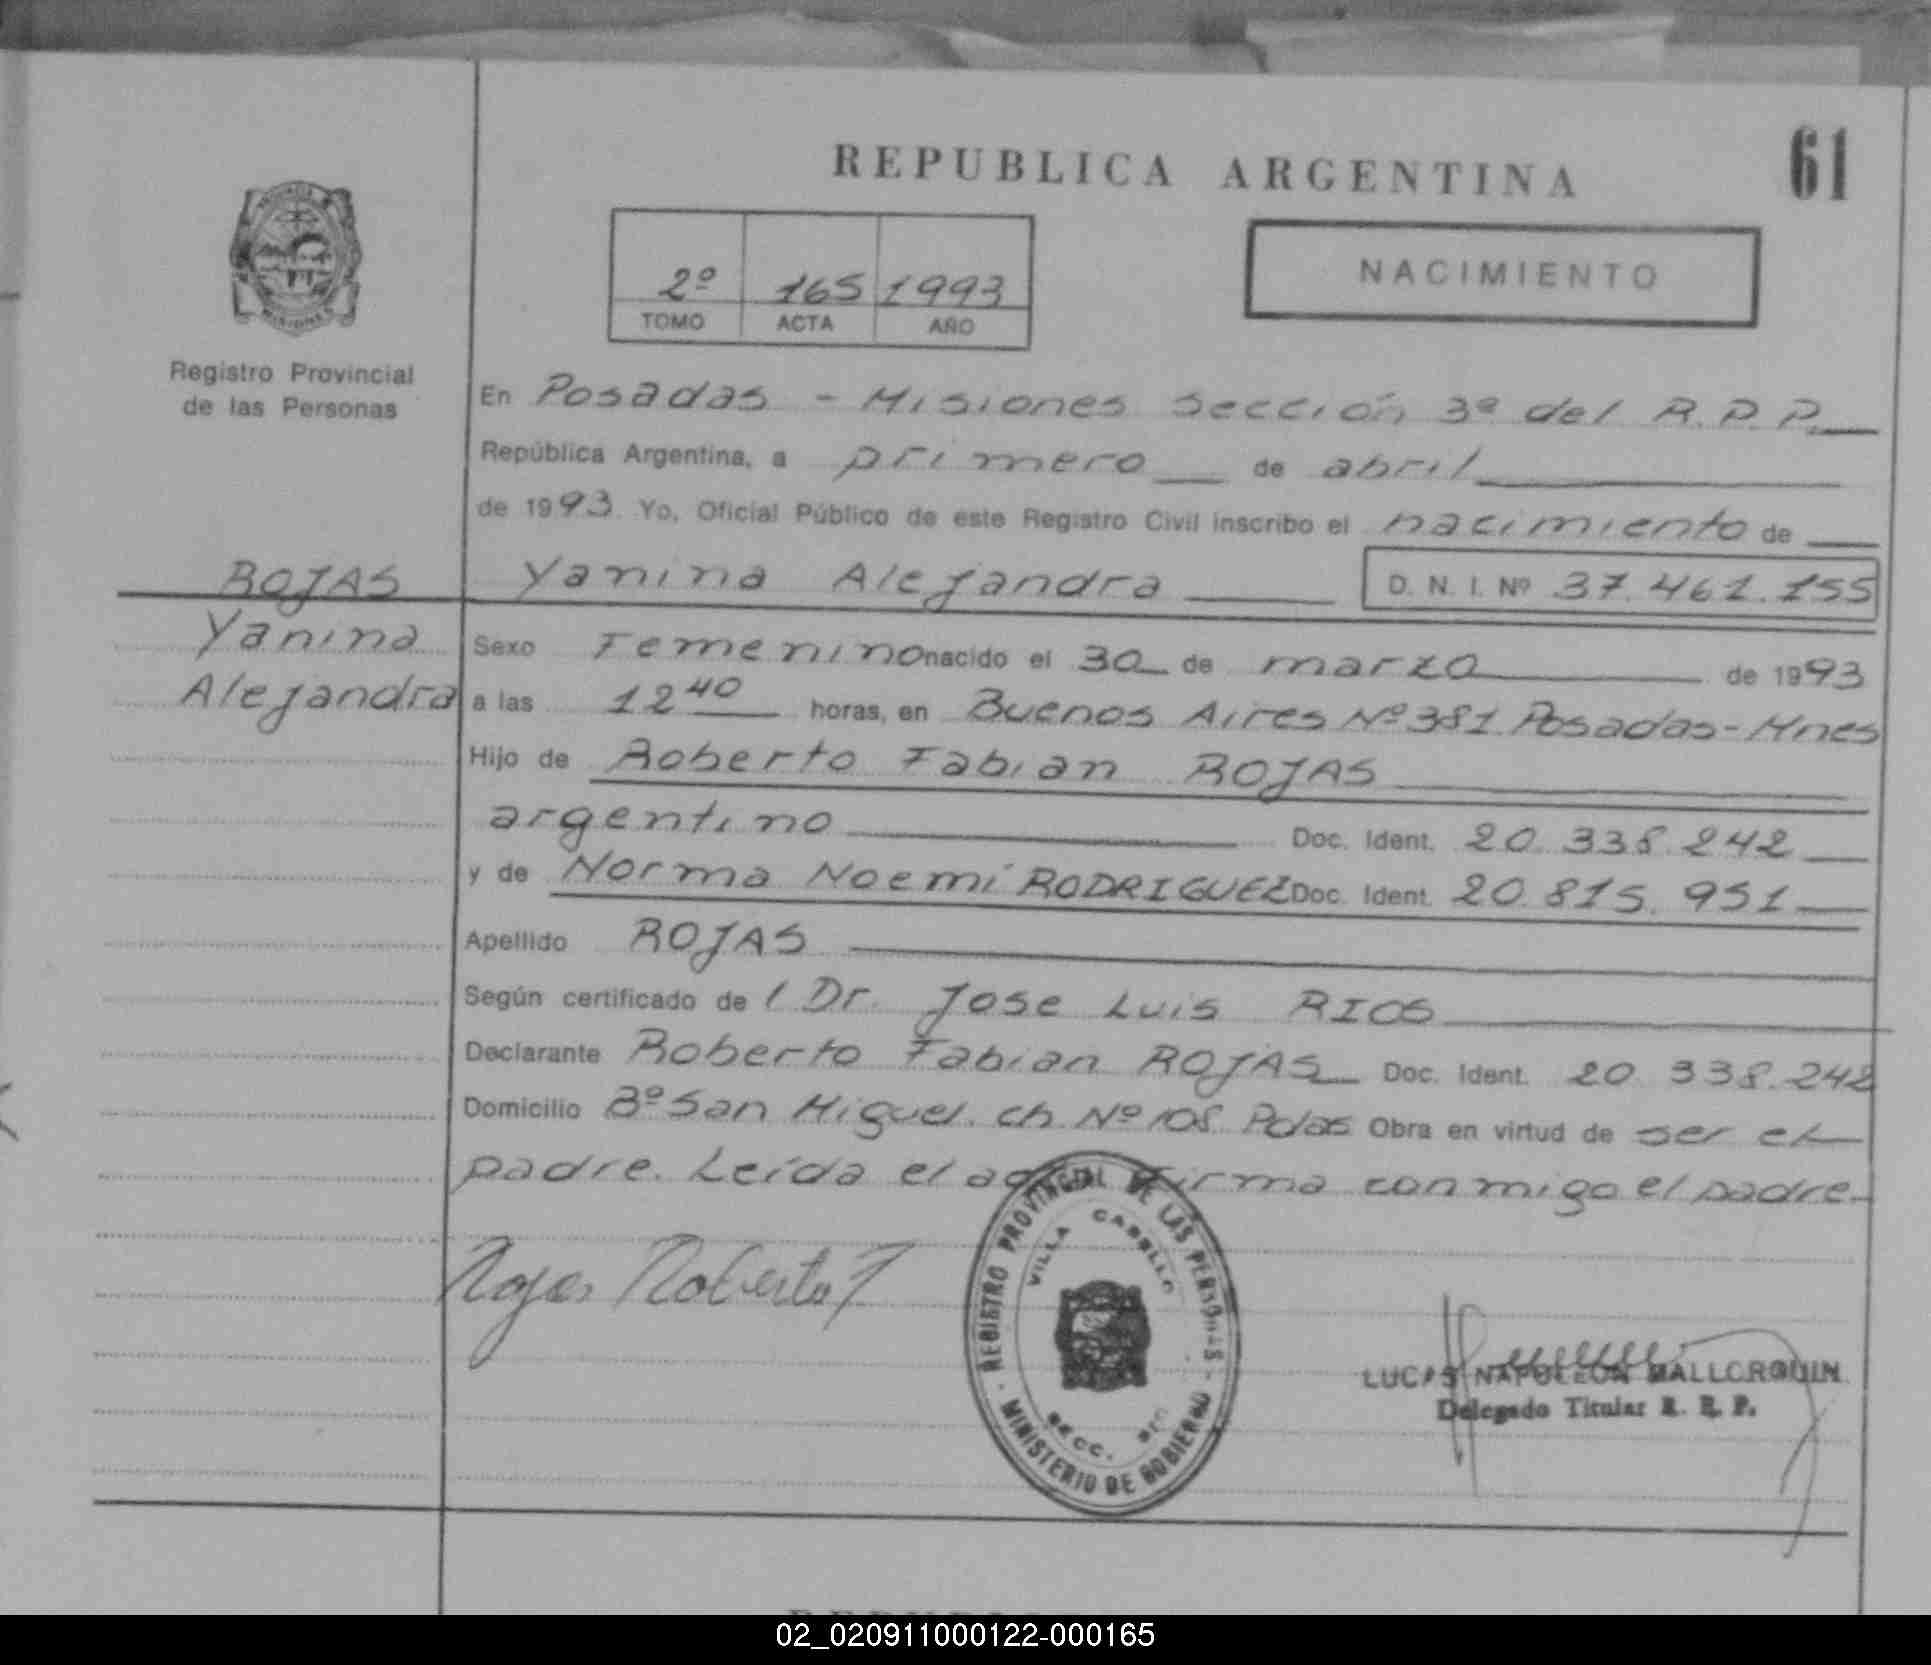 REPUBLICA ARGENTINA
61
2º 165 1993
TOMO ACTA AÑO
NACIMIENTO
Registro Provincial
de las Personas
En Posadas - Misiones Sección 3ª del R.P.P.
República Argentina, a primero de abril
de 1993. Yo, Oficial Público de este Registro Civil inscribo el nacimiento de
ROJAS
Yanina
Alejandra
Yanina Alejandra D. N. I. Nº 37.461.155
Sexo Femenino nacido el 30 de marzo de 1993
a las 12 40 horas, en Buenos Aires Nº 381 Posadas-Mnes
Hijo de Roberto Fabian ROJAS
argentino Doc. Ident. 20.338.242
y de Norma Noemí RODRIGUEZ Doc. Ident. 20.815.951
Apellido ROJAS
Según certificado de l Dr. Jose Luis RIOS
Declarante Roberto Fabian ROJAS Doc. Ident. 20.338.242
Domicilio Bº San Miguel. ch. Nº 108. Pdas Obra en virtud de ser el
padre. Leída el firma conmigo el padre.
Rojas Roberto F
REGISTRO PROVINCIAL DE LAS PERSONAS
VILLA CABELLO
SECC.
MINISTERIO DE GOBIERNO
LUCAS NAPOLEON MALLORQUIN
Delegado Titular R. P. P.
02_020911000122-000165